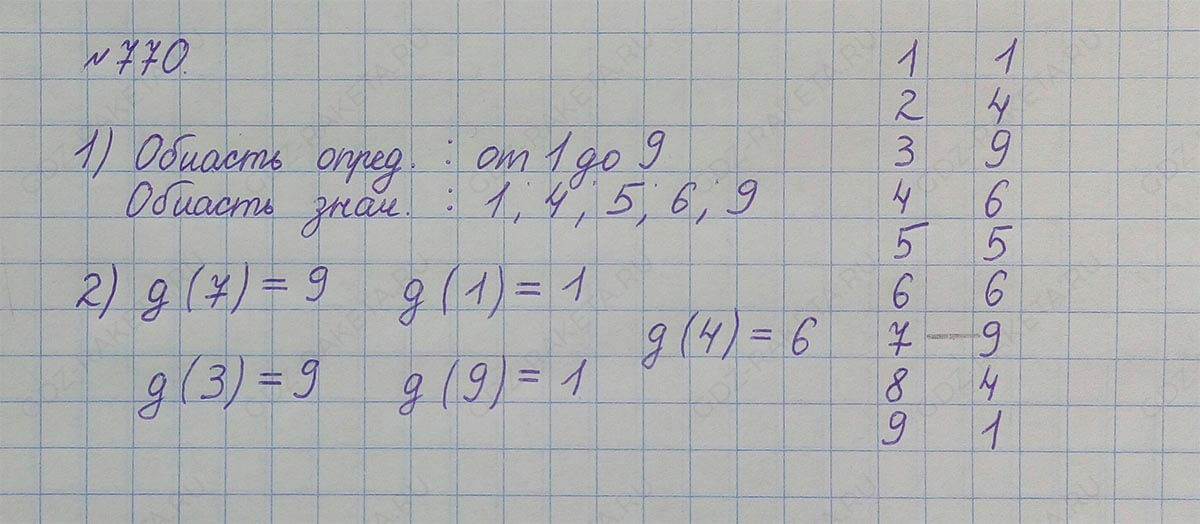 №770.
1) Область опред. : от 1 до 9
Область знач. : 1; 4; 5; 6; 9
2) g(7) = 9 g(1) = 1
g(4) = 6
g(3) = 9 g(9) = 1
1 1
2 4
3 9
4 6
5 5
6 6
7 — 9
8 4
9 1